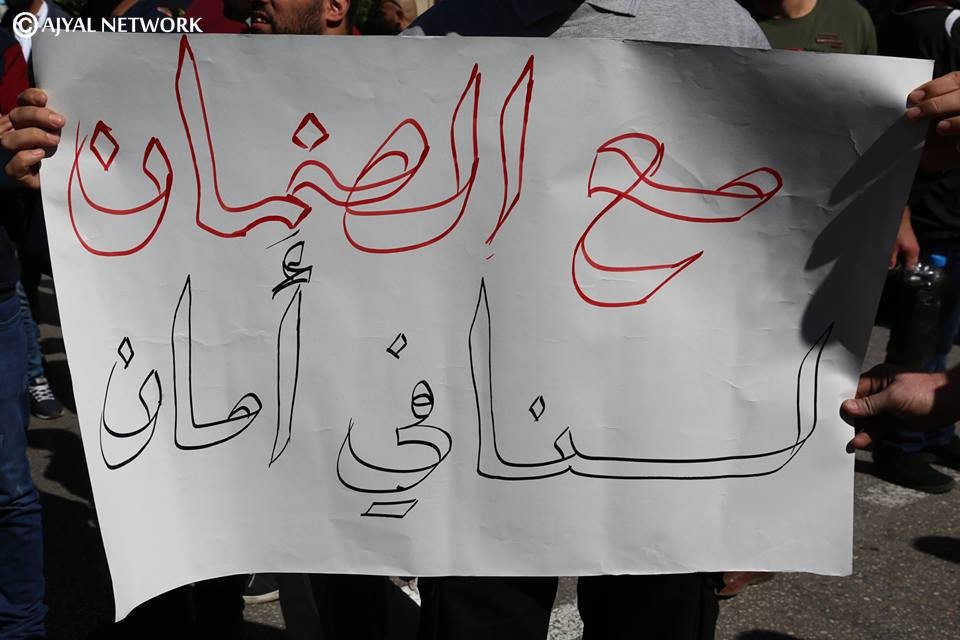 ©AJYAL NETWORK
مع الضمان
لسنا في أمان